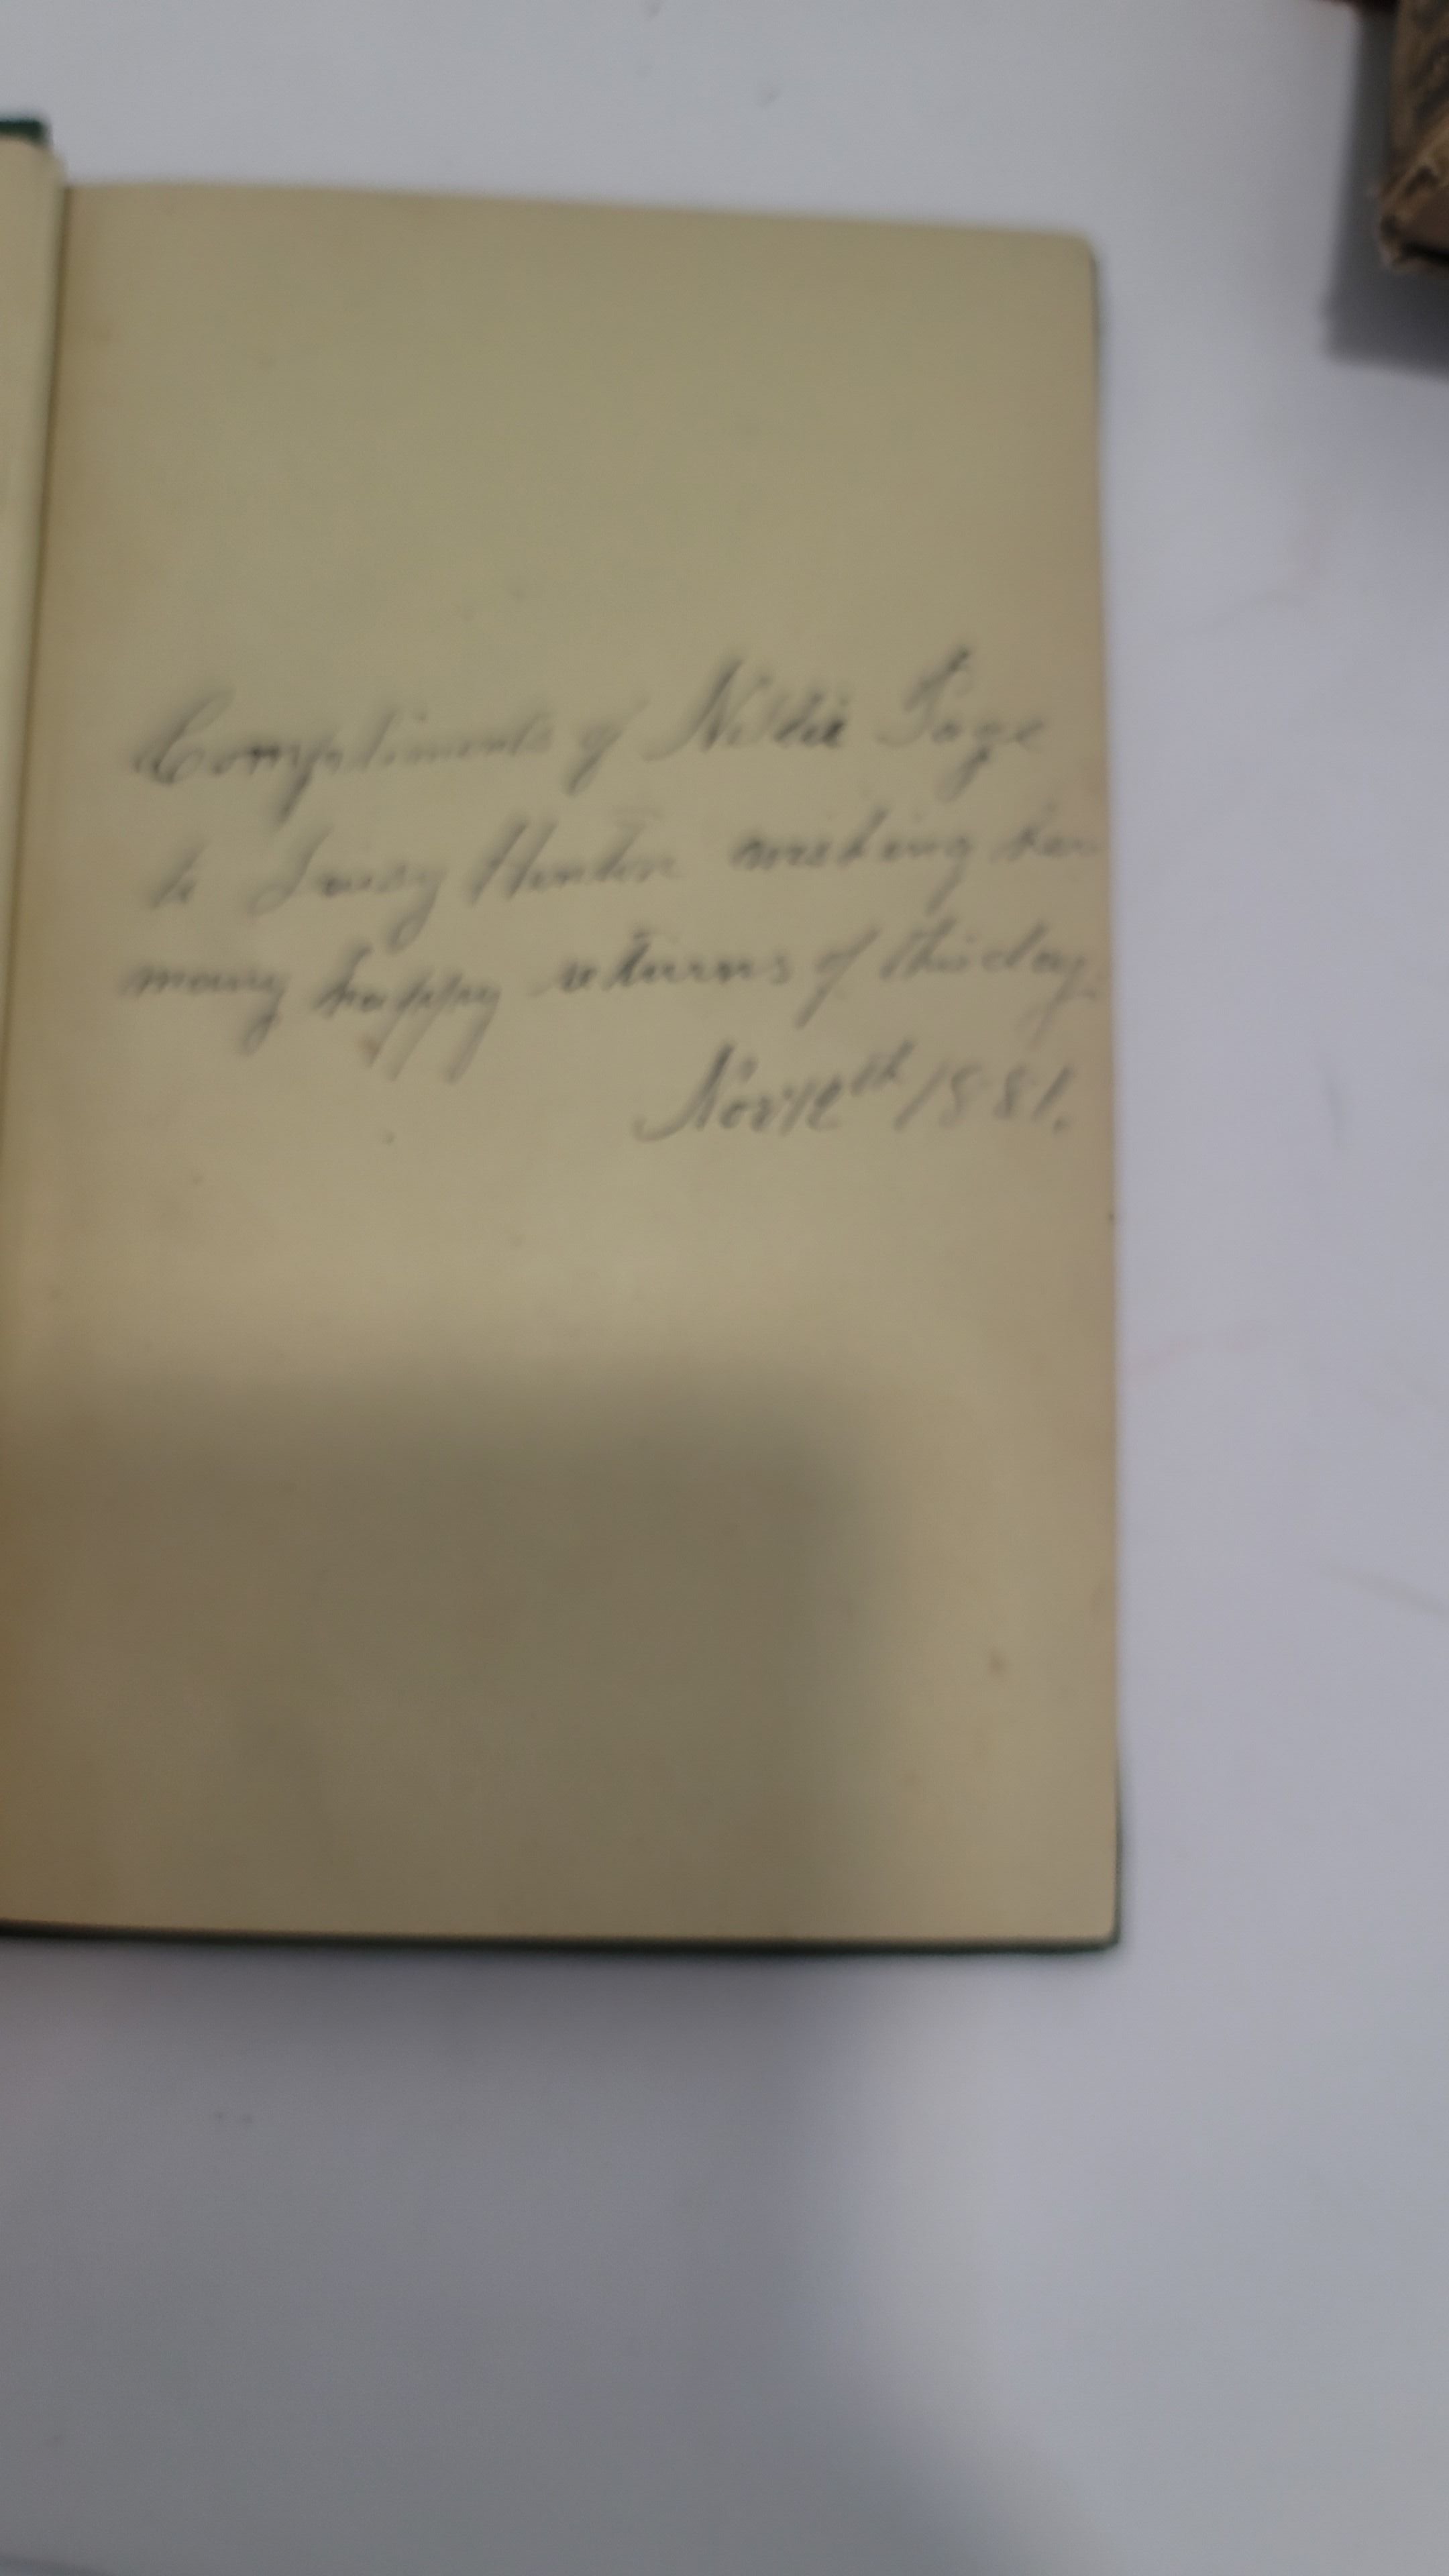 Compliments of Nillie Page
to Hunter wishing her
many happy returns of this day.
Nov 12th 1881.